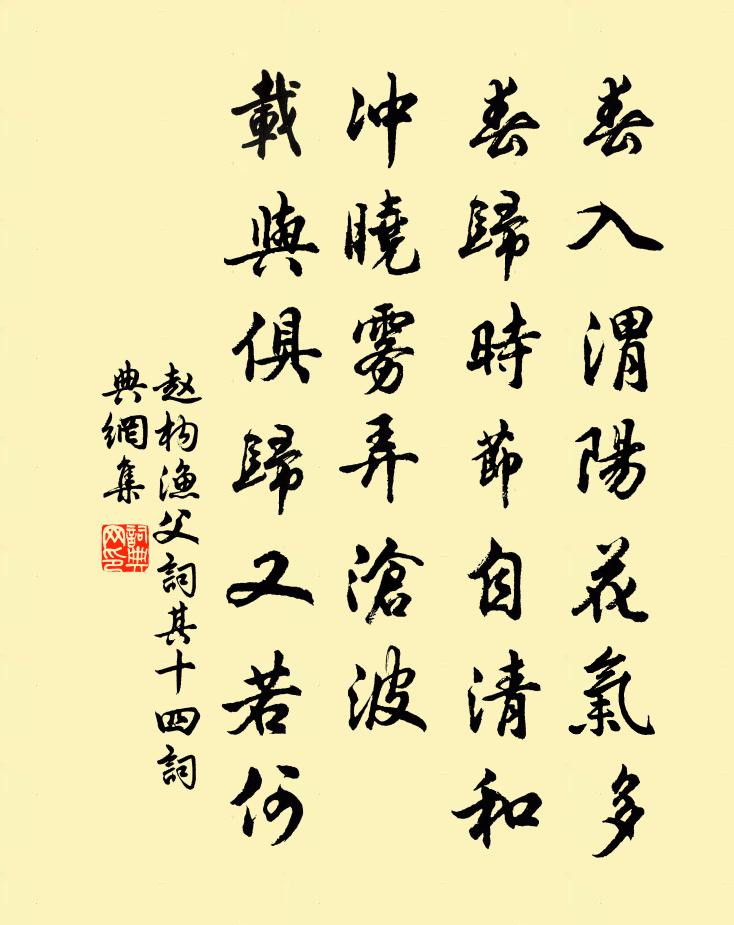 春入渭陽花氣多
春歸時節自清和
冲曉雾弄滄波
載與俱歸又若何
赵构渔父詞其十四詞
典網集
詞典网印